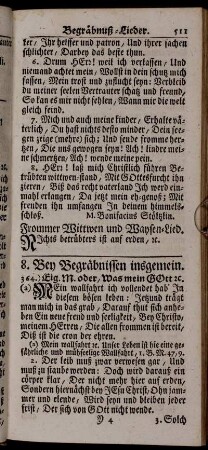 Begräbnuß-Lieder. 511
ker, Ihr helffer und patron, Und ihrer sachen
schlichter, Darbey das beste thun.
6. Drum HErr! weil ich verlassen, Und
niemand achtet mein, Wollst in dein schutz mich
fassen, Mein trost und zuflucht seyn: Verbleib
du meiner seelen Vertrauter schatz und freund,
So kan es mir nicht fehlen, Wann mir die welt
gleich feind.
7. Mich und auch meine kinder, Erhalte vä-
terlich, Du hast nichts desto minder, Dein see-
gen zeige (mehre) sich; Und sende fromme her-
zen, Die uns gewogen seyn: Ach! linder mei-
ne schmertzen, Ach! wende meine pein.
8. HErr! laß mich Christlich führen Be-
trübten wittwenstand, Mit GOttesfurcht ihn
zieren, Biß das recht vaterland Ich werd ein-
mahl erlangen, Da jetzt mein ehschatz ist, Mit
freuden ihn umfangen In deinem himmels-
schloß. M. Bonifacius Stöltzlin.
Frommer Wittwen und Waysen-Lied.
Nichts betrübters ist auf erden, ꝛc.
8. Bey Begräbnissen insgemein.
344. Eig. M. oder, Was mein GOtt ꝛc.
(a) MEin wallfahrt ich vollendet hab' In
diesem bösen leben: Jetzund trägt
man mich in das grab, Darauf thut sich anhe-
ben Ein neue freud und seeligkeit, Bey Christo,
meinem HErren, Die allen frommen ist bereit,
Diß ist die cron der ehren.
(a) Mein wallfahrt ꝛc. Unser Leben ist wie eine ge-
fährliche und mühselige Wallfahrt, 1. B. M. 47, 9.
2. Der leib muß zwar verwesen gar, Und
zu staub und äschen werden: Doch wird daraus ein
cörper klar, Der nicht mehr hier auf erden,
Sondern hiernächst bey JEsu Christ: Ohn jam-
mer und elende, Wird seyn und bleiben jeder
frist, Der sich von GOtt nicht wende.
4 3. Solch